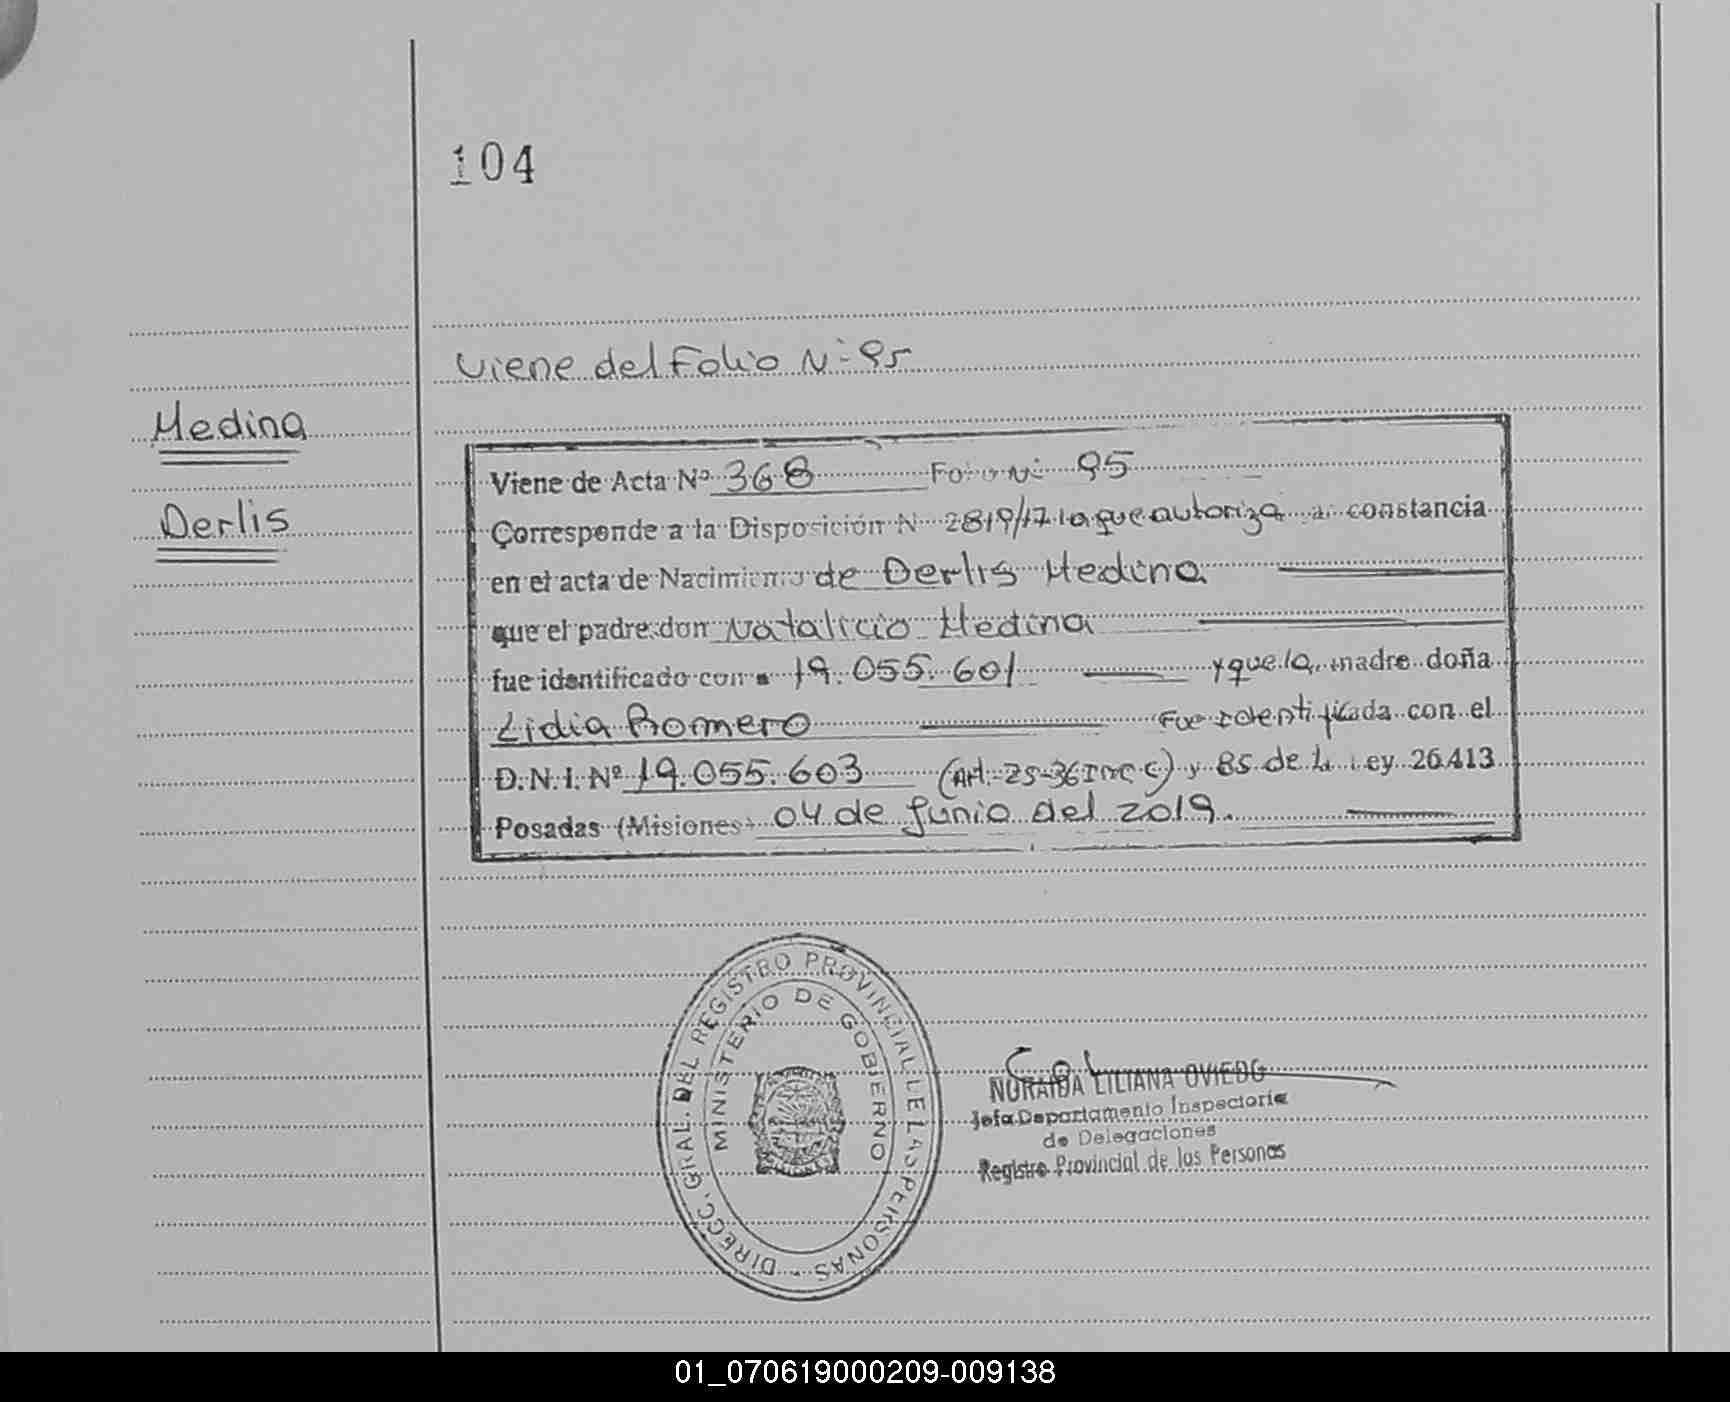 104
Viene del Folio Nº 95
Medina
Derlis
Viene de Acta Nº 368 Folio Nº 95
Corresponde a la Disposición N 2819/17 la que autoriza a constancia
en el acta de Nacimiento de Derlis Medina
que el padre don Natalicio Medina
fue identificado con 19.055.601 y que la madre doña
Lidia Romero Fue identificada con el
D.N.I. Nº 19.055.603 (Art. 25-36 C) y 85 de la Ley 26.413
Posadas (Misiones) 04 de Junio del 2019.
DIRECC. GRAL. DEL REGISTRO PROVINCIAL DE LAS PERSONAS
MINISTERIO DE GOBIERNO
NORAIDA LILIANA OVIEDO
Jefa Departamento Inspectoria
de Delegaciones
Registro Provincial de las Personas
01_070619000209-009138